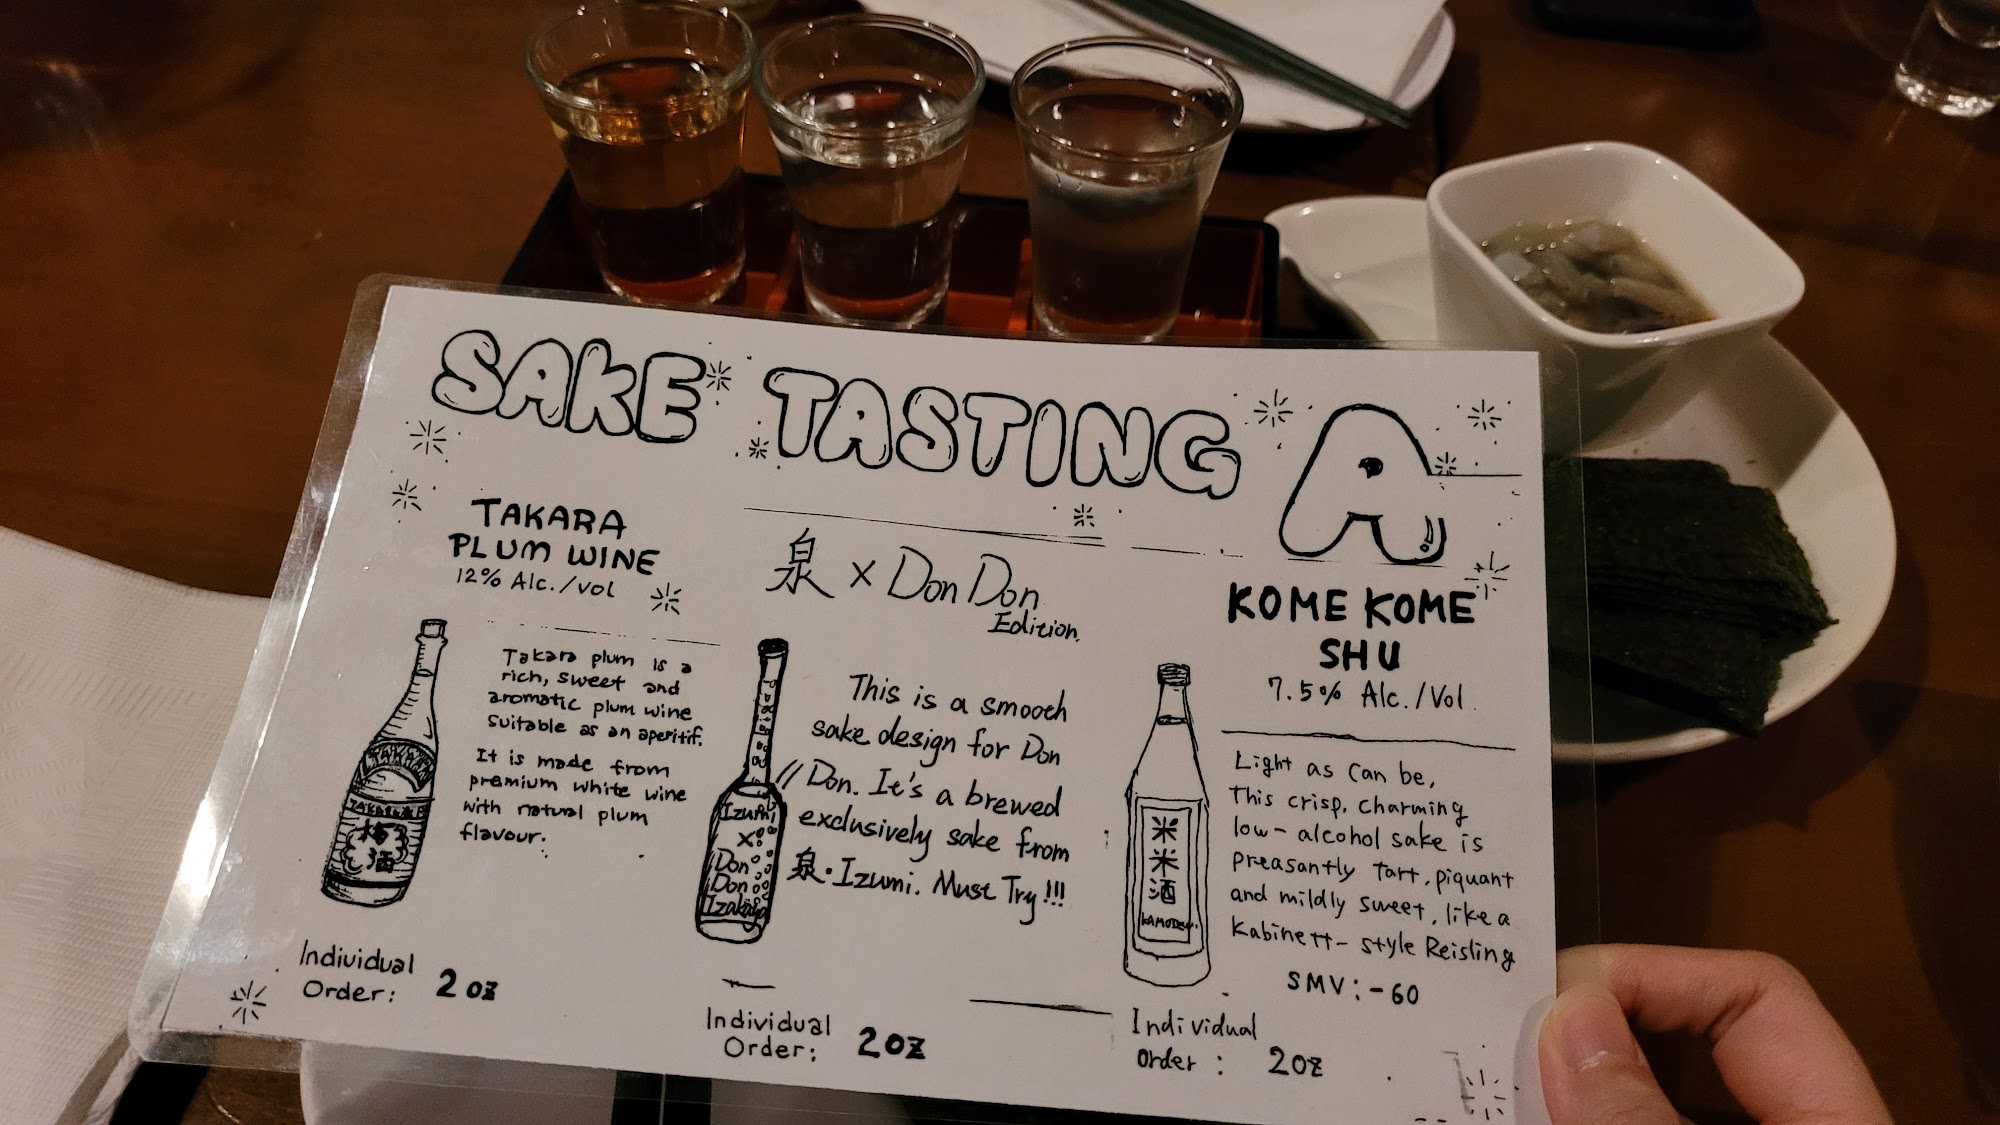 SAKE TASTING A
TAKARA
PLUM WINE
12% Alc./vol
Takara plum is a
rich, sweet and
aromatic plum wine
suitable as an aperitif.
It is made from
premium white wine
with natural plum
flavour.
TAKARA
梅
酒
Individual
Order: 2 oz
泉 x Don Don
Edition.
This is a smooth
sake design for Don
Don. It's a brewed
exclusively sake from
泉・Izumi. Must Try!!!
Izumi
X
Don
Don
Izakaya
Individual
Order: 2oz
KOME KOME
SHU
7.5% Alc./Vol.
Light as can be,
This crisp, charming
low-alcohol sake is
preasantly tart, piquant
and mildly sweet, like a
Kabinett-style Reisling
SMV: -60
米
米
酒
Individual
order : 2oz